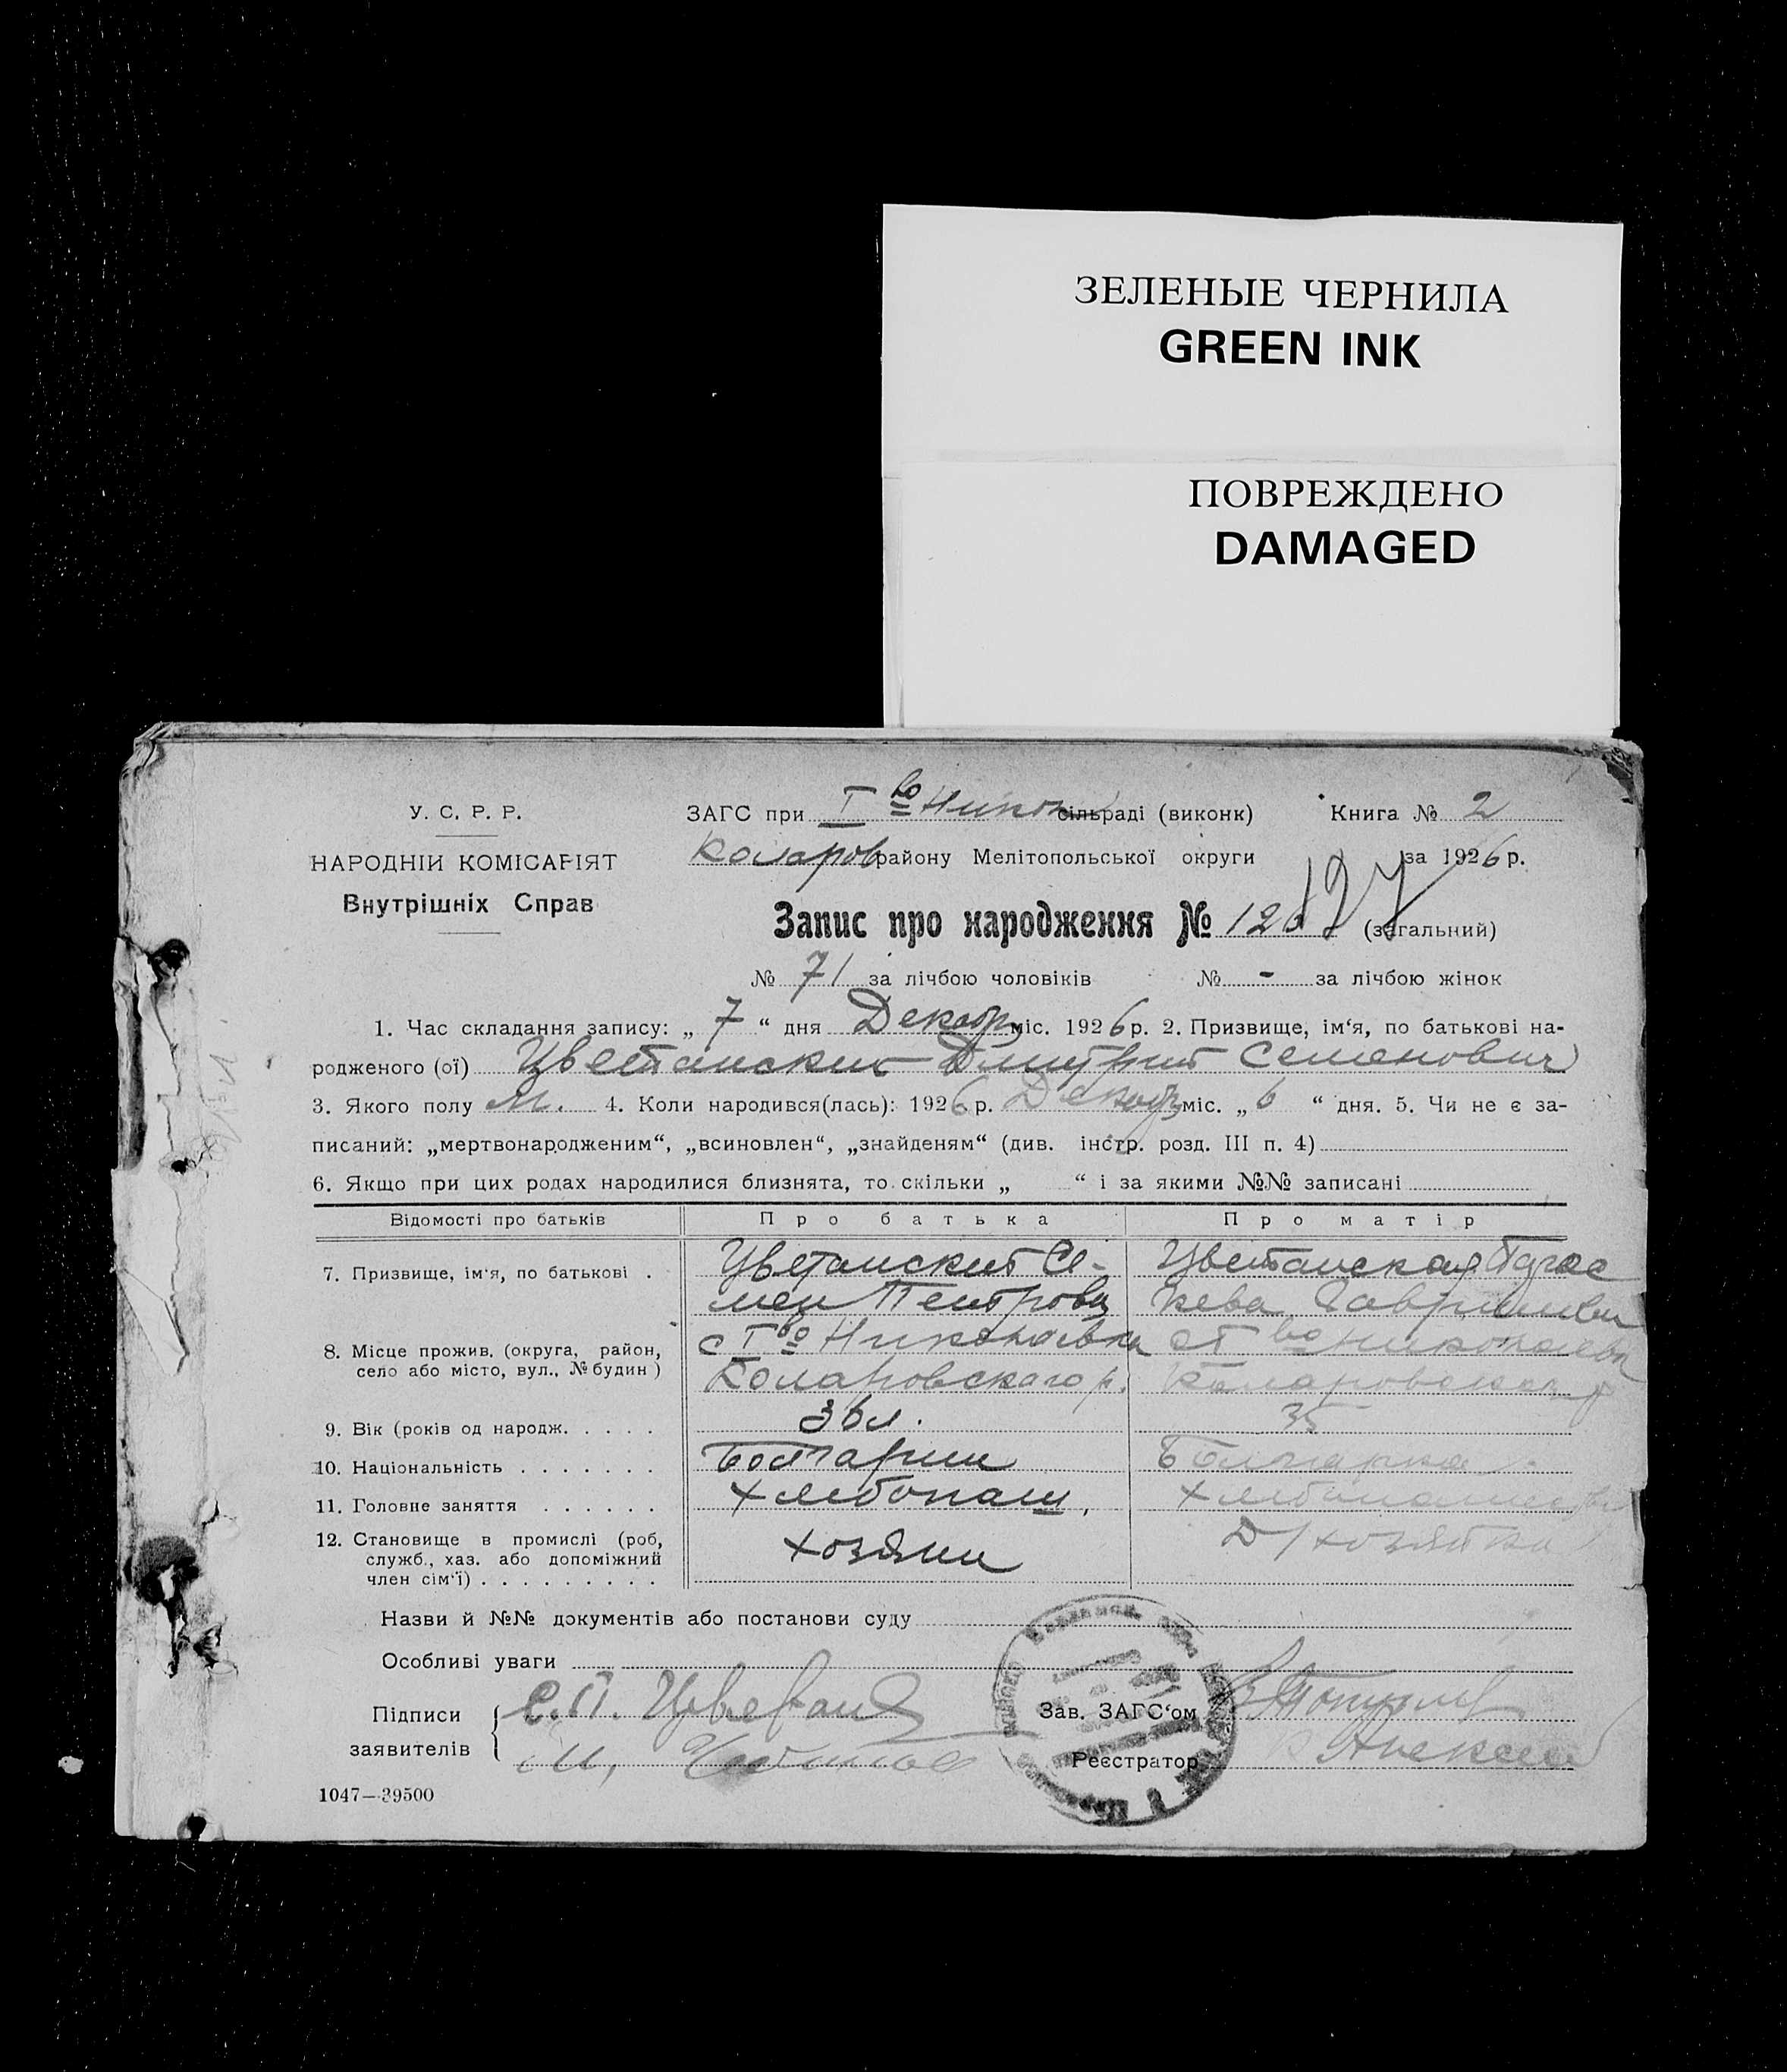 ЗЕЛЕНЫЕ ЧЕРНИЛА
GREEN INK
ПОВРЕЖДЕНО
DAMAGED
У. С. Р. Р.
НАРОДНІЙ КОМІСАРІЯТ
Внутрішніх Справ
ЗАГС при І во Никол сільраді (виконк) Книга № 2
Коларов району Мелітопольської округи за 1926 р.
Запис про народження № 127 (загальний)
№ 71 за лічбою чоловіків № - за лічбою жінок
1. Час складання запису: „ 7 “ дня Декабр міс. 1926 р. 2. Призвище, ім‘я, по батькові на-
родженого (ої) Цветанский Дмитрий Семенович
3. Якого полу м. 4. Коли народився(лась): 1926 р. Декабр міс. „ 6 “ дня. 5. Чи не є за-
писаний: „мертвонародженим“, „всиновлен“, „знайденям“ (див. інстр. розд. III п. 4)
6. Якщо при цих родах народилися близнята, то скільки „ “ і за якими №№ записані
Відомості про батьків Про батька Про матір
7. Призвище, ім‘я, по батькові . Цветанский Се- Цветанская Парас
мен Петров кева Гаврилов
8. Місце прожив. (округа, район, с І во Николаевка с І во Николаевка
село або місто, вул., № будин) Коларовского р. Коларовского р
9. Вік (років од народж. . . . . 36 л. 35
10. Національність . . . . . . . Болгарин Болгарка
11. Головне заняття . . . . . . Хлебопаш. Хлебопаш
12. Становище в промислі (роб, хозяин д/хозяйка
служб., хаз. або допоміжний
член сім‘ї) . . . . . . . . .
Назви й №№ документів або постанови суду
Особливі уваги
Підписи С.П. Цветан Зав. ЗАГС‘ом
заявителів И, Реєстратор Алексеев
1047—39500